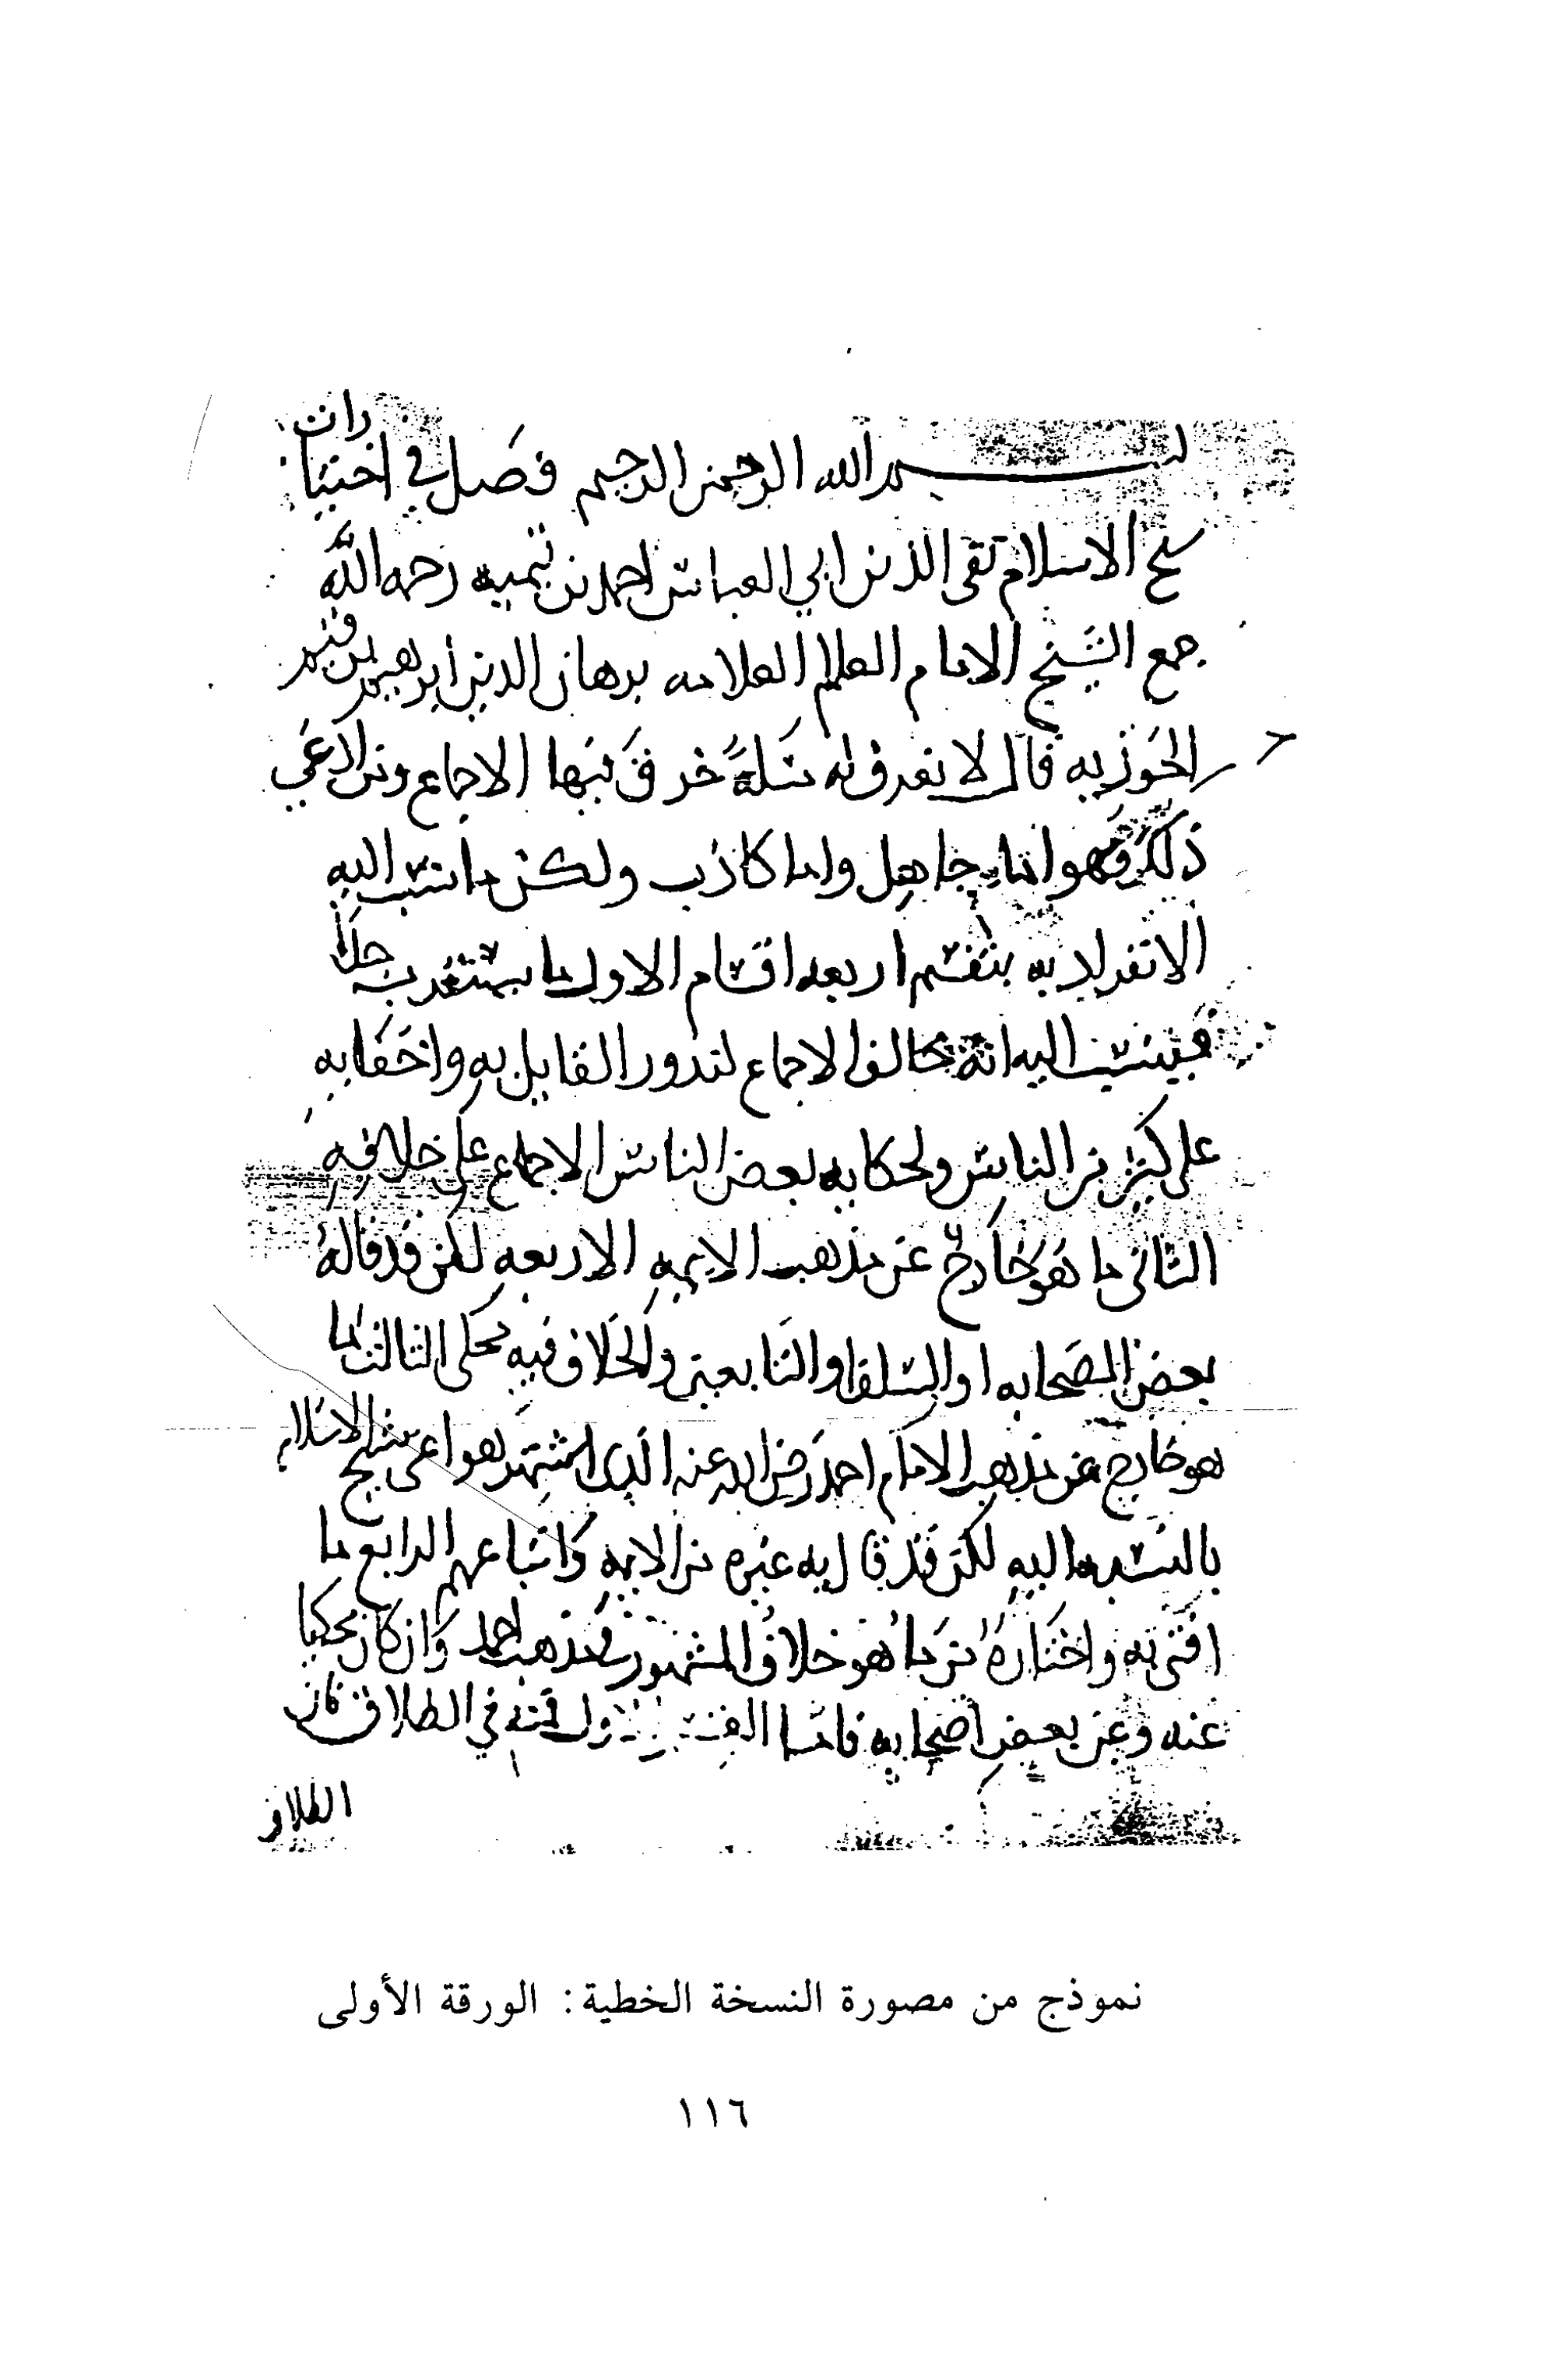 بسم الله الرحمن الرحيم فصل في اختيارات
شيخ الاسلام تقي الدين ابي العباس احمد بن تيميه رحمه الله
جمع الشيخ الامام العالم العلامه برهان الدين ابرهيم بن قيم
الجوزيه قال لا نعرف له مسلة خرق فيها الاجماع ومن ادعي
ذلك فهو اما جاهل واما كاذب ولكن ما نسب اليه
الانفراد به ينقسم اربعه اقسام الاول ما يستغرب جدا
فينسب اليه انه خالف الاجماع لندور القايل به واخفايه
على كثير من الناس ولحكايه بعض الناس الاجماع على خلافه
الثاني ما هو خارج عن مذهب الايمه الاربعه لكن قد قاله
بعض الصحابه او السلف او التابعين والخلاف فيه محكى الثالث ما
هو خارج عن مذهب الامام احمد رضى الله عنه الذى اشتهر هو اعنى شيخ الاسلام
بالنسبه اليه لكن قد قال به غيره من الايمه واتباعهم الرابع ما
افتى به واختاره مما هو خلاف المشهور في مذهب احمد وان كان محكيا
عنه وعن بعض اصحابه فاما القسم الاول فمنه في الطلاق فان
الطلاق
نموذج من مصورة النسخة الخطية: الورقة الأولى
١١٦